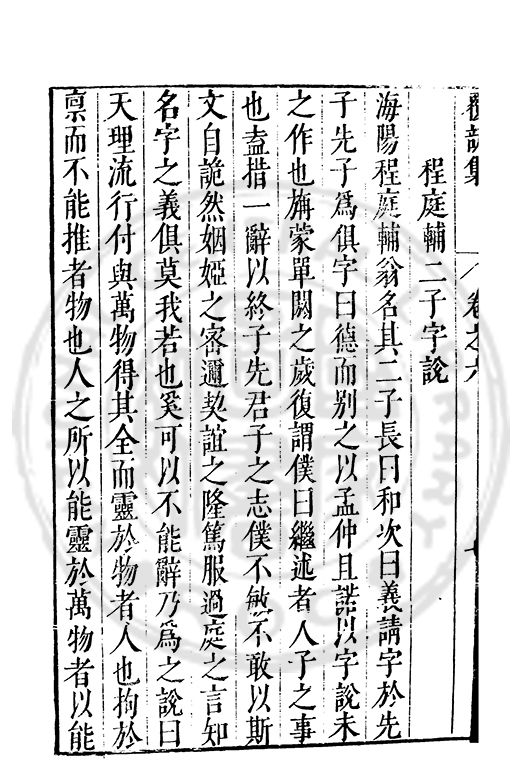 覆瓿集
卷之六
七
程庭輔二子字說
海陽程庭輔翁名其二子長曰和次曰義請字於先
子先子爲俱字曰德而別之以孟仲且諾以字說未
之作也旃蒙單閼之歲復謂僕曰繼述者人子之事
也盍措一辭以終子先君子之志僕不敏不敢以斯
文自詭然姻婭之密邇契誼之隆篤服過庭之言知
名字之義俱莫我若也奚可以不能辭乃爲之說曰
天理流行付與萬物得其全而靈於物者人也拘於
稟而不能推者物也人之所以能靈於萬物者以能